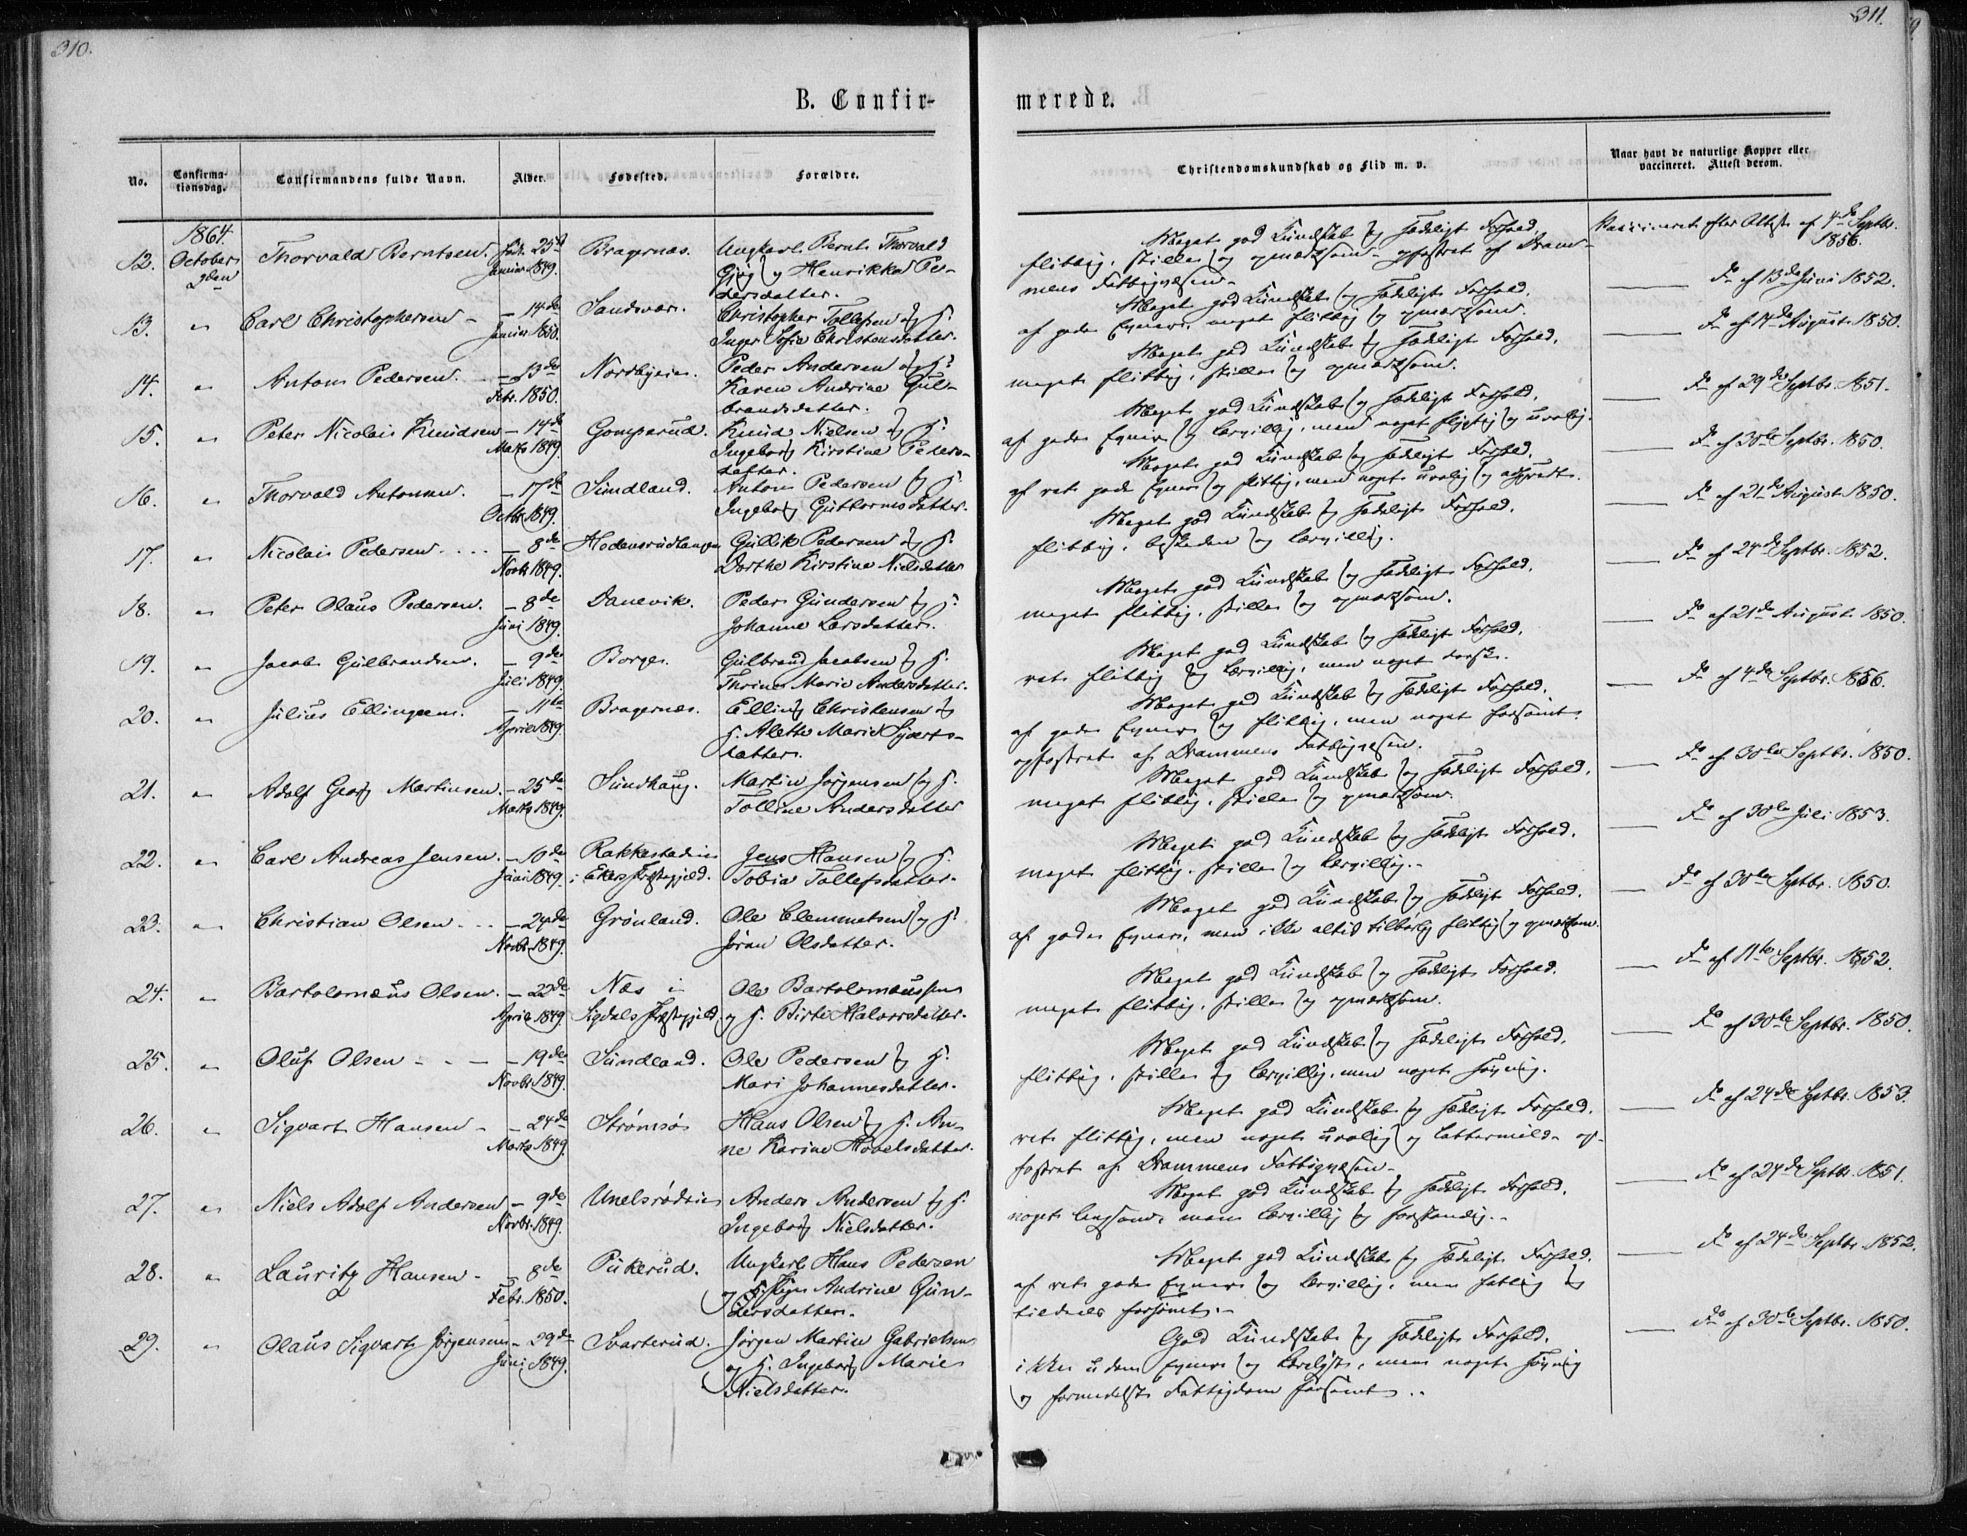 310.
311.
B. Confir-
merede.
No.
Confirma-
tionsdag.
Confirmandens fulde Navn.
Alder.
Fødested.
Forældre.
Christendomskundskab og Flid m. v.
Naar havt de naturlige Kopper eller
vaccineret. Attest derom.
1864.
12. October Thorvald Berntsen. født 25de Bragernæs. Ungkarl Bernt Thorvald
9den Januar 1849. og Henrikke Pe-
dersdatter.
Meget god Kundskab og Sædeligt Forhold.
flittig, stille og opmærksom - opfostret af Dram-
mens Fattigvæsen -
Vaccineret efter Attest af 4de Septbr.
1856.
13. " Carl Christophersen - - 14de Sandsvær. Christopher Tollefsen og H.
Januar 1850. Inger Sofie Christensdatter.
Meget god Kundskab og Sædeligt Forhold.
af gode Evner, meget flittig og opmærksom.
Do af 13de Juni 1852.
14. " Anton Pedersen. - 13de Nordbyeie. Peder Andersen og H.
Febr. 1850. Karen Andrine Gul-
brandsdatter.
Meget god Kundskab og Sædeligt Forhold.
meget flittig, stille og opmærksom.
Do af 14de August 1850.
15. " Peter Nicolai Knudsen - 14de Gomperud. Knud Nielsen og H.
Marts 1849. Ingeborg Kirstine Peders-
datter.
Meget god Kundskab og Sædeligt Forhold.
af gode Evner og lærvillig, men noget flygtig og urolig.
Do af 29de Septbr. 1851.
16. " Thorvald Antonsen. - 17de Sundland. Anton Pedersen og H.
Octbr. 1849. Ingeborg Guttormsdatter.
Meget god Kundskab og Sædeligt Forhold.
af ret gode Evner og flittig, men noget urolig og adspredt.
Do af 30te Septbr. 1850.
17. " Nicolai Pedersen. . . . - 8de Hedensrudlangen Gullik Pedersen og H.
Novbr. 1849. Dorthe Kirstine Nielsdatter
Meget god Kundskab og Sædeligt Forhold.
flittig, beskeden og lærvillig.
Do af 21de August 1850.
18. " Peter Olaus Pedersen. - 8de Danevik. Peder Gundersen og H.
Juni 1849. Johanne Larsdatter.
Meget god Kundskab og Sædeligt Forhold.
meget flittig, stille og opmærksom.
Do af 24de Septbr. 1852.
19. " Jacob Gulbrandsen. - 9de Borge. Gulbrand Jacobsen og H.
Juli 1849. Thrine Marie Andersdatter.
Meget god Kundskab og Sædeligt Forhold.
ret flittig og lærvillig, men noget dorsk.
Do af 21de August 1850.
20. " Julius Ellingsen. - 11te Bragernæs. Elling Christensen og
April 1849. H. Alette Marie
datter.
Meget god Kundskab og Sædeligt Forhold.
af gode Evner og flittig, men noget forsømt.
opfostret af Drammens Fattigvæsen.
Do af 4de Septbr. 1856.
21. " Adolf Georg Martinsen. - 25de Sundhaug. Martin Jørgensen og H.
Marts 1849. Talline Andersdatter
Meget god Kundskab og Sædeligt Forhold.
meget flittig, stille og opmærksom.
Do af 30te Septbr. 1850.
22. " Carl Andreas Jensen. - 10de Rakkestadeie Jens Hansen og H.
Juni 1849. i Ekers Præstegjæld. Tobia Tollefsdatter.
Meget god Kundskab og Sædeligt Forhold.
meget flittig, stille og lærvillig. -
Do af 30te Juli 1853.
23. " Christian Olsen - . . - 24de Grønland. Ole Clemmetsen og H.
Novbr. 1849. Jøran Olsdatter.
Meget god Kundskab og Sædeligt Forhold.
af gode Evner, men ikke altid tilbørlig flittig og opmærksom.
Do af 30te Septbr. 1850.
24. " Bartolomæus Olsen. - 22de Næs i Ole Bartolomæussen
April 1849. Sigdals Præstegjæld. og H. Birte Halvorsdatter.
Meget god Kundskab og Sædeligt Forhold.
meget flittig, stille og opmærksom.
Do af 11te Septbr. 1852.
25. " Oluf Olsen - - - - 19de Sundland. Ole Pedersen og H.
Novbr. 1849. Mari Johannesdatter.
Meget god Kundskab og Sædeligt Forhold.
flittig, stille og lærvillig, men noget søvnig.
Do af 30te Septbr. 1850.
26. " Sigvart Hansen - - 24de Strømsø Hans Olsen og H. An-
Marts 1849. ne Karine Hovelsdatter.
Meget god Kundskab og Sædeligt Forhold.
ret flittig, men noget urolig og lattermild - op-
fostret af Drammens Fattigvæsen -
Do af 24de Septbr. 1853.
27. " Niels Adolf Andersen - 9de Unelsrødeie Anders Andersen og H.
Novbr. 1849. Ingeborg Nielsdatter.
Meget god Kundskab og Sædeligt Forhold.
noget langsom, men lærvillig og forstandig. -
Do af 24de Septbr. 1851.
28. " Lauritz Hansen - - 8de Pukerud. Ungkarl Hans Pedersen
Febr. 1850. og Pigen Andrine Gun-
dersdatter.
Meget god Kundskab og Sædeligt Forhold.
af ret gode Evner og lærvillig, men fattig og
tildeels forsømt. -
Do af 24de Septbr. 1852.
29. " Olaus Sigvart Jørgensen - 29de Svarterud. Jørgen Martin Gabrielsen
Juni 1849. og H. Ingeborg Marie
Nielsdatter.
God Kundskab og Sædeligt Forhold.
ikke uden Evner og Lærelyst, men noget søvnig
og formedelst Fattigdom forsømt. .
Do af 30te Septbr. 1850.